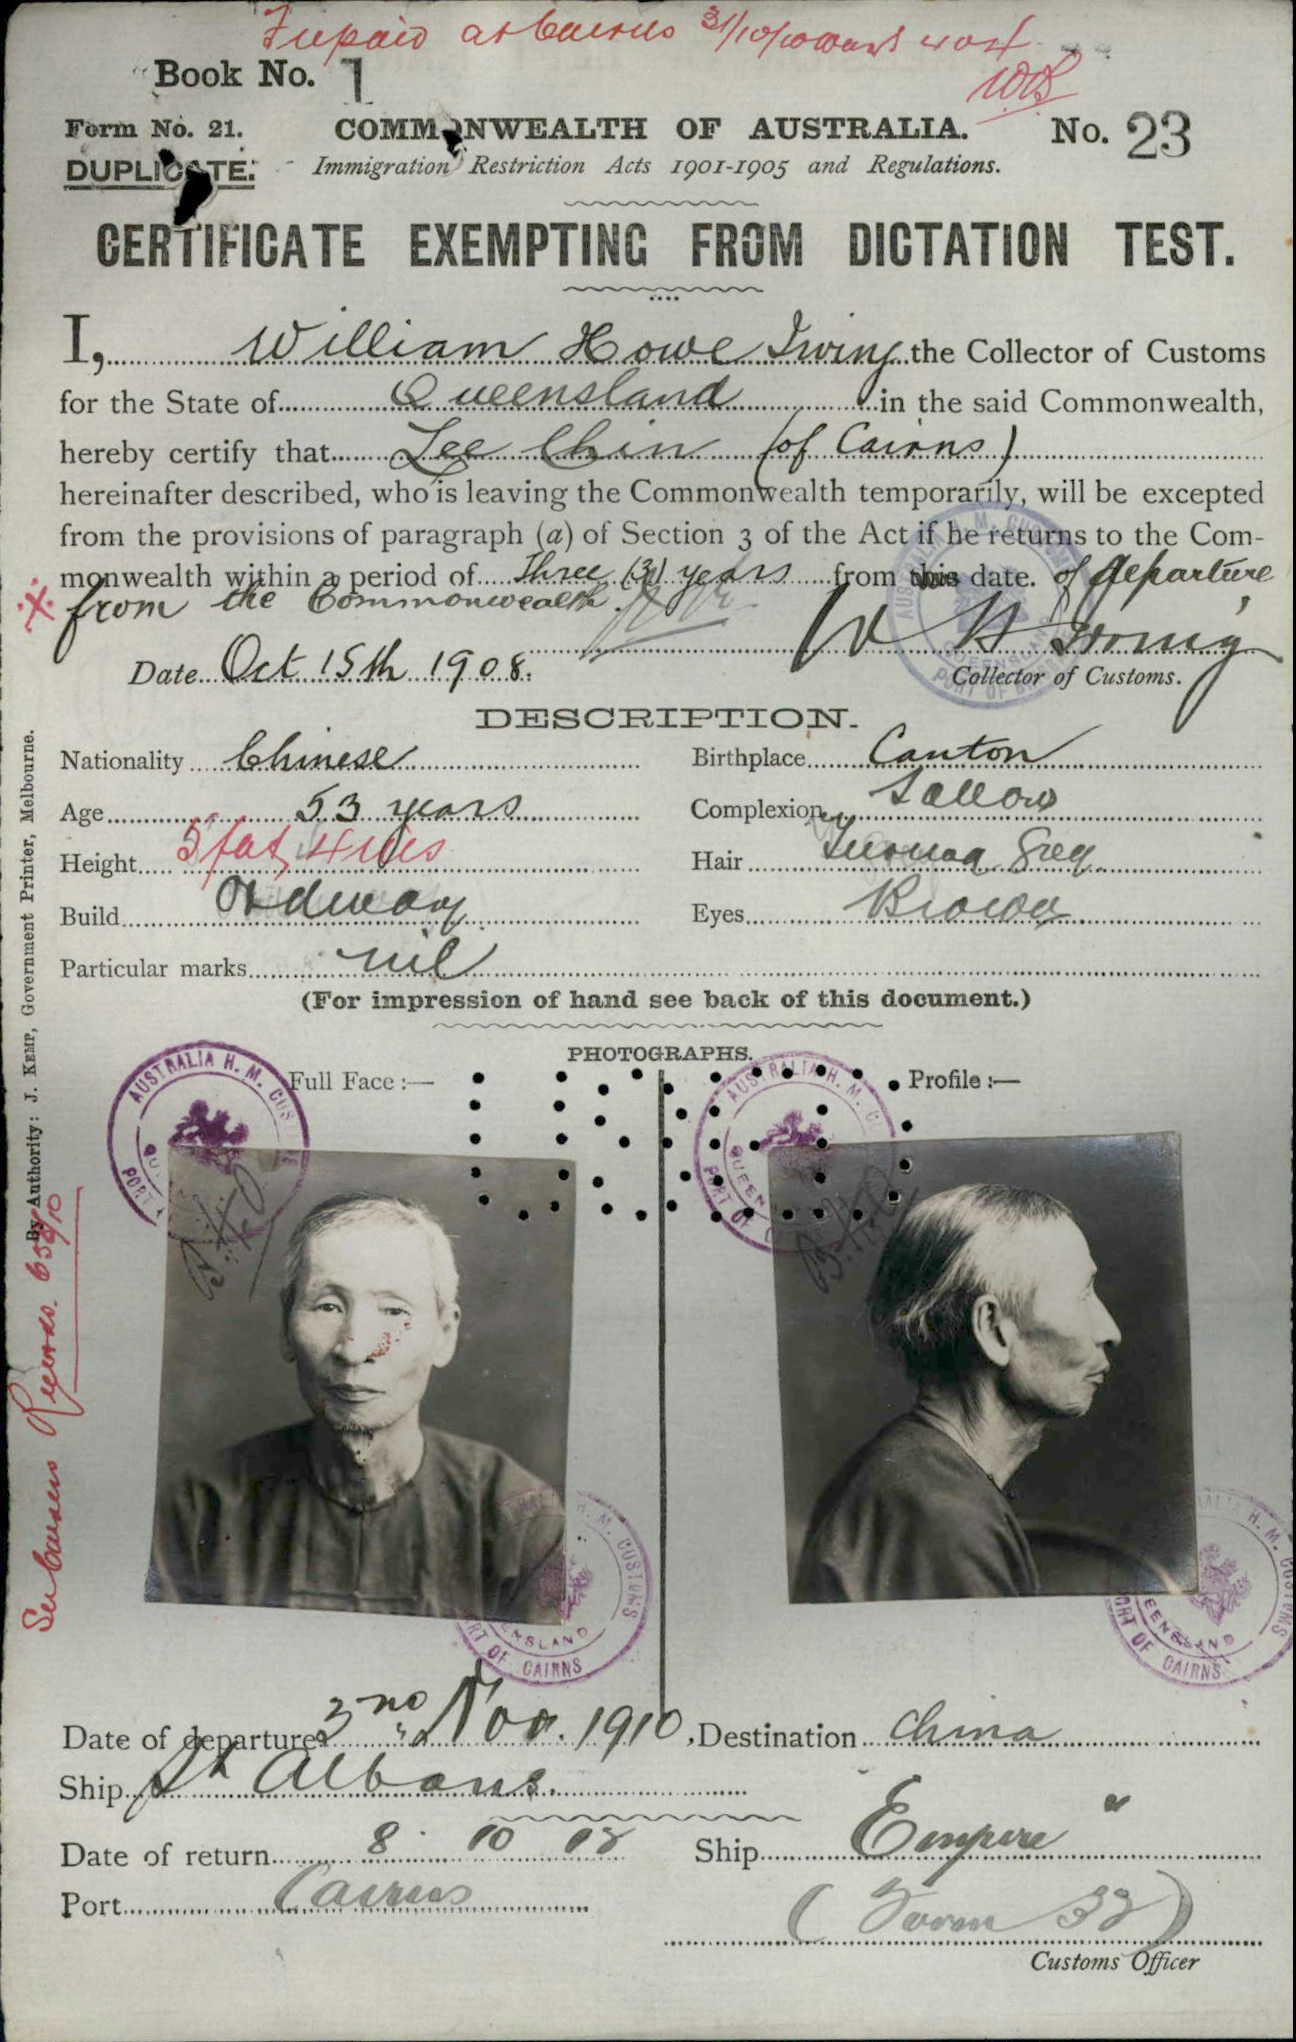 at Cairns 31/10/10
Book No. 1
Form No. 21. COMMONWEALTH OF AUSTRALIA. No. 23
DUPLICATE. Immigration Restriction Acts 1901-1905 and Regulations.
CERTIFICATE EXEMPTING FROM DICTATION TEST.
I, William Howe Irving the Collector of Customs
for the State of Queensland in the said Commonwealth,
hereby certify that Lee Chin (of Cairns)
hereinafter described, who is leaving the Commonwealth temporarily, will be excepted
from the provisions of paragraph (a) of Section 3 of the Act if he returns to the Com-
monwealth within a period of Three (3) years from this date. of departure
from the Commonwealth.
W H Irving
Date Oct 15th 1908.
Collector of Customs.
DESCRIPTION.
Nationality Chinese Birthplace Canton
Age 53 years Complexion Sallow
Height 5 feet 4 ins Hair Turning Grey
Build Ordinary Eyes Brown
Particular marks nil
(For impression of hand see back of this document.)
PHOTOGRAPHS.
Full Face :— Profile :—
AUSTRALIA H. M. CUSTOMS
QUEENSLAND
PORT OF CAIRNS
By Authority: J. KEMP, Government Printer, Melbourne.
Date of departure 2nd Nov. 1910. Destination China
Ship St Albans.
Date of return 8 10 12 Ship Empire
Port Cairns (Form 32)
Customs Officer